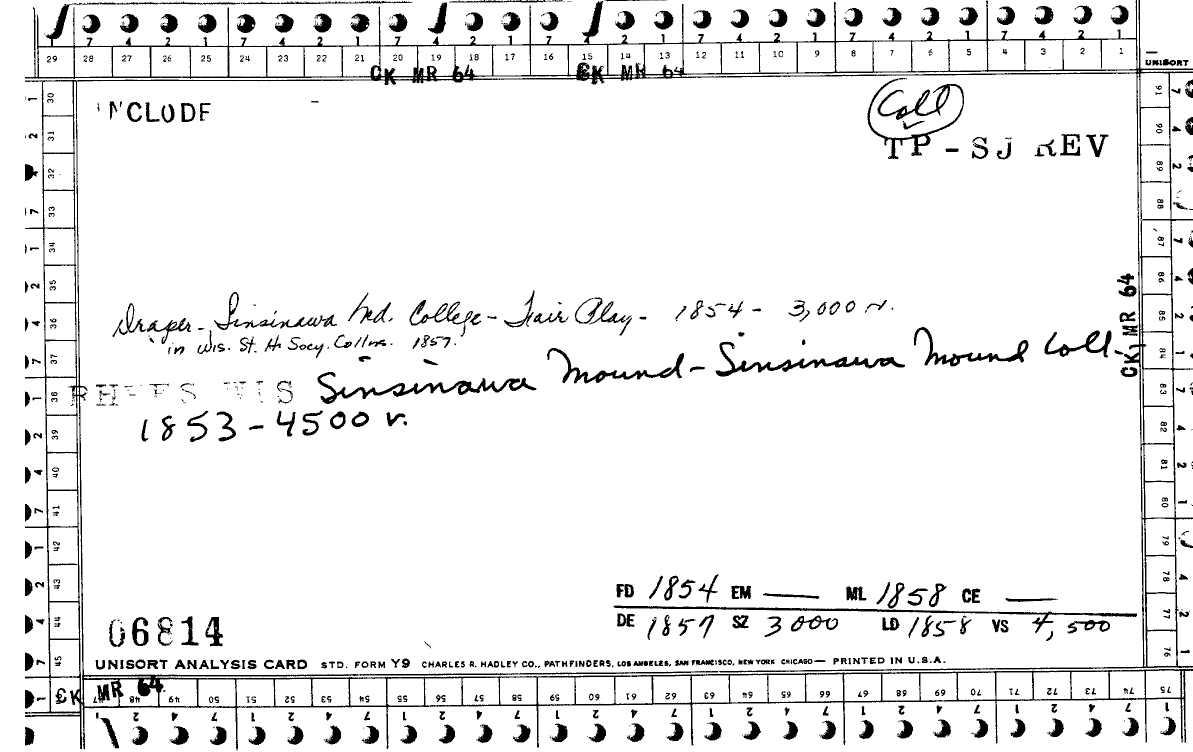 1 7 4 2 1 7 4 2 1 7 4 2 1 7 4 2 1 7 4 2 1 7 4 2 1
29 28 27 26 25 24 23 22 21 20 19 18 17 16 15 14 13 12 11 10 9 8 7 6 5 4 3 2 1
UNISORT
CK MR 64 CK MR 64
Coll
TP - SJ REV
Draper - Sinsinawa Md. College - Fair Play - 1854 - 3,000 v.
in Wis. St. H. Socy. Collns. 1857.
RHEES WIS Sinsinawa Mound - Sinsinawa Mound Coll -
1853 - 4500 v.
CK MR 64
FD 1854 EM —— ML 1858 CE ——
DE 1857 SZ 3000 LD 1858 VS 4,500
06814
UNISORT ANALYSIS CARD STD. FORM Y9 CHARLES R. HADLEY CO., PATHFINDERS, LOS ANGELES, SAN FRANCISCO, NEW YORK CHICAGO — PRINTED IN U.S.A.
CK MR 64
47 48 49 50 51 52 53 54 55 56 57 58 59 60 61 62 63 64 65 66 67 68 69 70 71 72 73 74 75
30 31 32 33 34 35 36 37 38 39 40 41 42 43 44 45
91 90 89 88 87 86 85 84 83 82 81 80 79 78 77 76